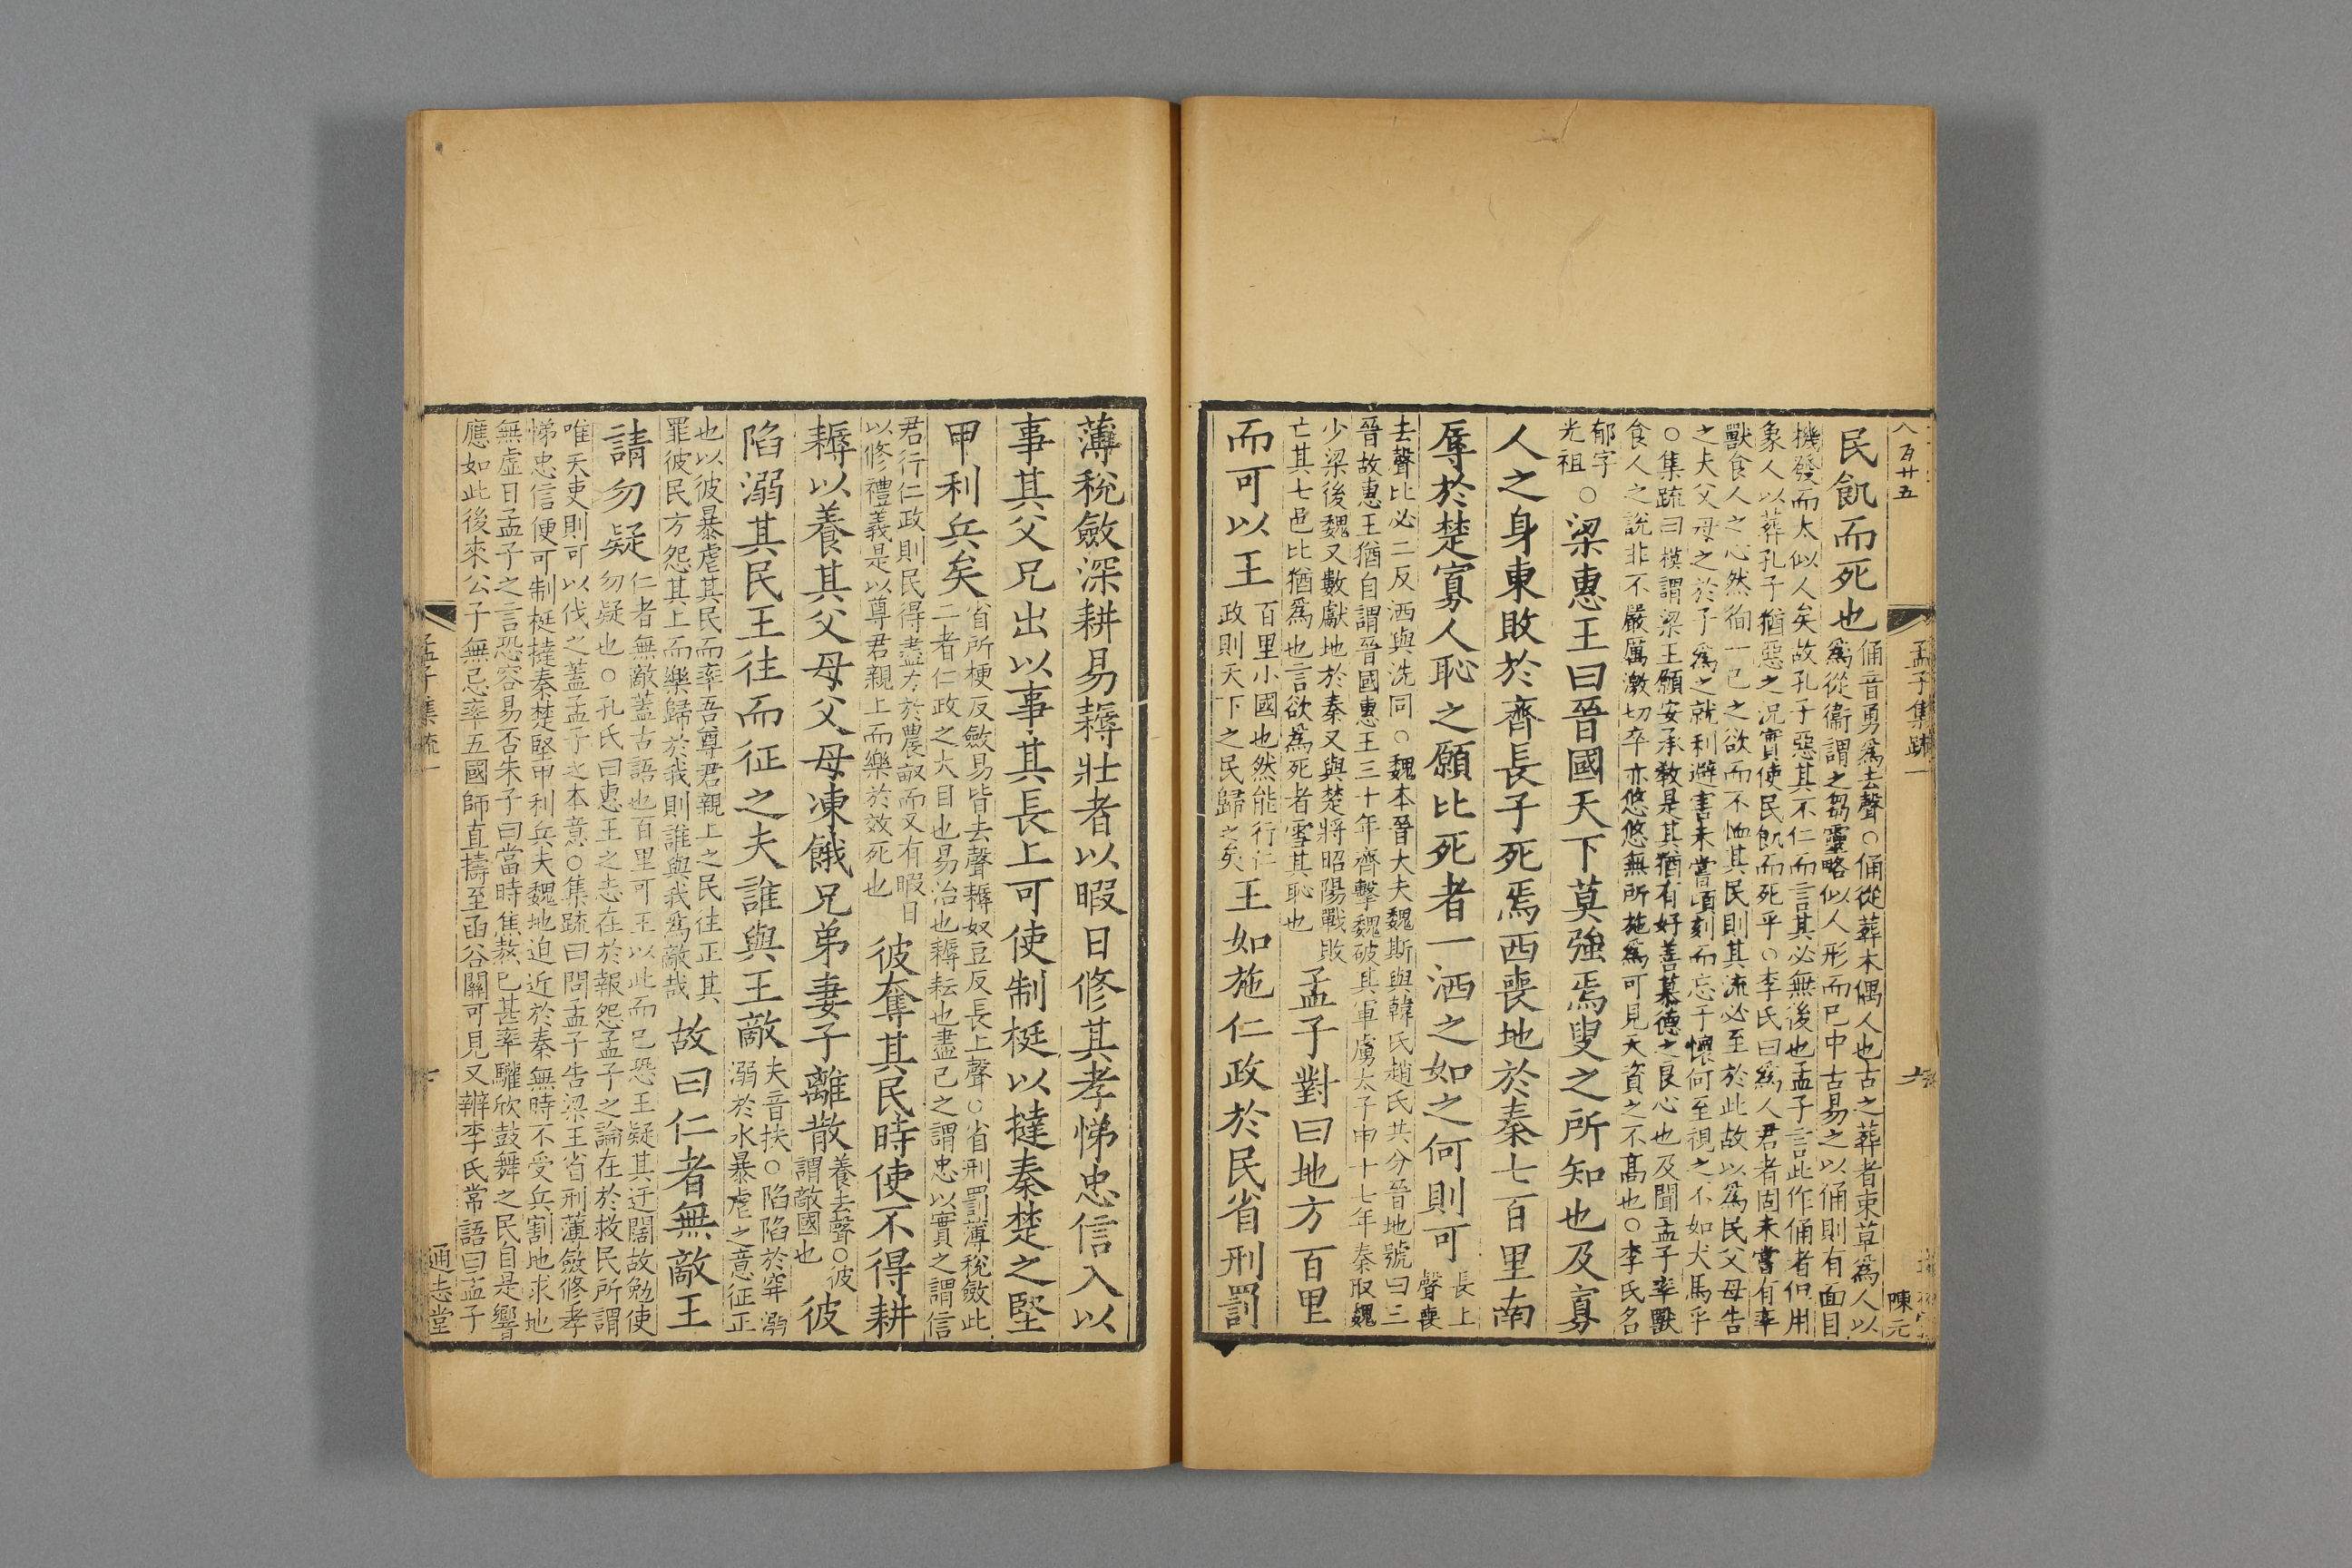 八百廿五
孟子集疏一
六
陳元
民飢而死也
俑音勇爲去聲○俑從葬木偶人也古之葬者束草爲人以
爲從衞謂之芻靈略似人形而已中古易之以俑則有面目
機發而太似人矣故孔子惡其不仁而言其必無後也孟子言此作俑者但用
象人以葬孔子猶惡之況實使民飢而死乎○李氏曰爲人君者固未嘗有率
獸食人之心然徇一己之欲而不恤其民則其流必至於此故以爲民父母告
之夫父母之於子爲之就利避害未嘗頃刻而忘于懷何至視之不如犬馬乎
○集疏曰模謂梁王願安承敎是其猶有好善慕德之良心也及聞孟子率獸
食人之說非不嚴厲激切卒亦悠悠無所施爲可見天資之不高也○李氏名
郁字
光祖
○梁惠王曰晉國天下莫強焉叟之所知也及寡
人之身東敗於齊長子死焉西喪地於秦七百里南
辱於楚寡人恥之願比死者一洒之如之何則可
長上
聲喪
去聲比必二反洒與洗同○魏本晉大夫魏斯與韓氏趙氏共分晉地號曰三
晉故惠王猶自謂晉國惠王三十年齊擊魏破其軍虜太子申十七年秦取魏
少梁後魏又數獻地於秦又與楚將昭陽戰敗
亡其七邑比猶爲也言欲爲死者雪其恥也
孟子對曰地方百里
而可以王
百里小國也然能行仁
政則天下之民歸之矣
王如施仁政於民省刑罰
薄稅斂深耕易耨壯者以暇日修其孝悌忠信入以
事其父兄出以事其長上可使制梃以撻秦楚之堅
甲利兵矣
省所梗反斂易皆去聲耨奴豆反長上聲○省刑罰薄稅斂此
二者仁政之大目也易治也耨耘也盡己之謂忠以實之謂信
君行仁政則民得盡力於農畝而又有暇日
以修禮義是以尊君親上而樂於效死也
彼奪其民時使不得耕
耨以養其父母父母凍餓兄弟妻子離散
養去聲○彼
謂敵國也
彼
陷溺其民王往而征之夫誰與王敵
夫音扶○陷陷於穽溺
溺於水暴虐之意征正
也以彼暴虐其民而率吾尊君親上之民往正其
罪彼民方怨其上而樂歸於我則誰與我爲敵哉
故曰仁者無敵王
請勿疑
仁者無敵蓋古語也百里可王以此而已恐王疑其迂闊故勉使
勿疑也○孔氏曰惠王之志在於報怨孟子之論在於救民所謂
唯天吏則可以伐之蓋孟子之本意○集疏曰問孟子告梁王省刑薄斂修孝
悌忠信便可制梃撻秦楚堅甲利兵夫魏地迫近於秦無時不受兵割地求地
無虛日孟子之言恐容易否朱子曰當時焦熬已甚率驩欣鼓舞之民自是響
應如此後來公子無忌率五國師直擣至函谷關可見又辯李氏常語曰孟子
孟子集疏一
通志堂